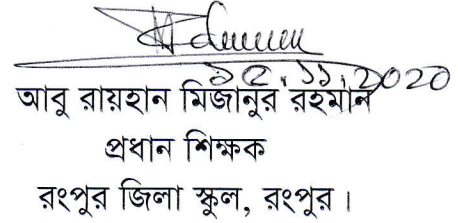 ১৫.১১.2020
আবু রায়হান মিজানুর রহমান
প্রধান শিক্ষক
রংপুর জিলা স্কুল, রংপুর।